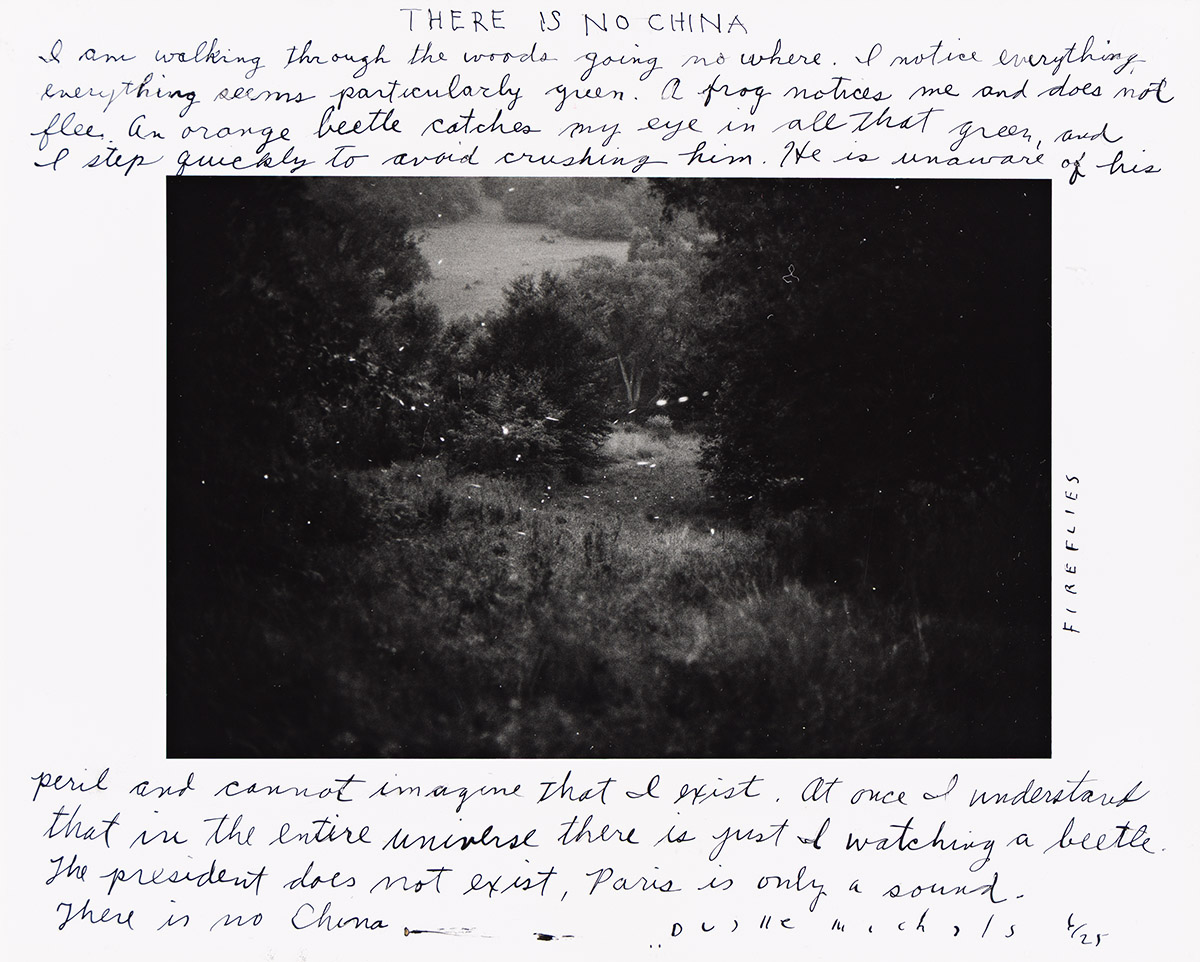 THERE IS NO CHINA
I am walking through the woods going no where. I notice everything,
everything seems particularly green. A frog notices me and does not
flee. An orange beetle catches my eye in all that green, and
I step quickly to avoid crushing him. He is unaware of his
FIREFLIES
peril and cannot imagine that I exist. At once I understand
that in the entire universe there is just I watching a beetle.
The president does not exist, Paris is only a sound.
There is no China
/25